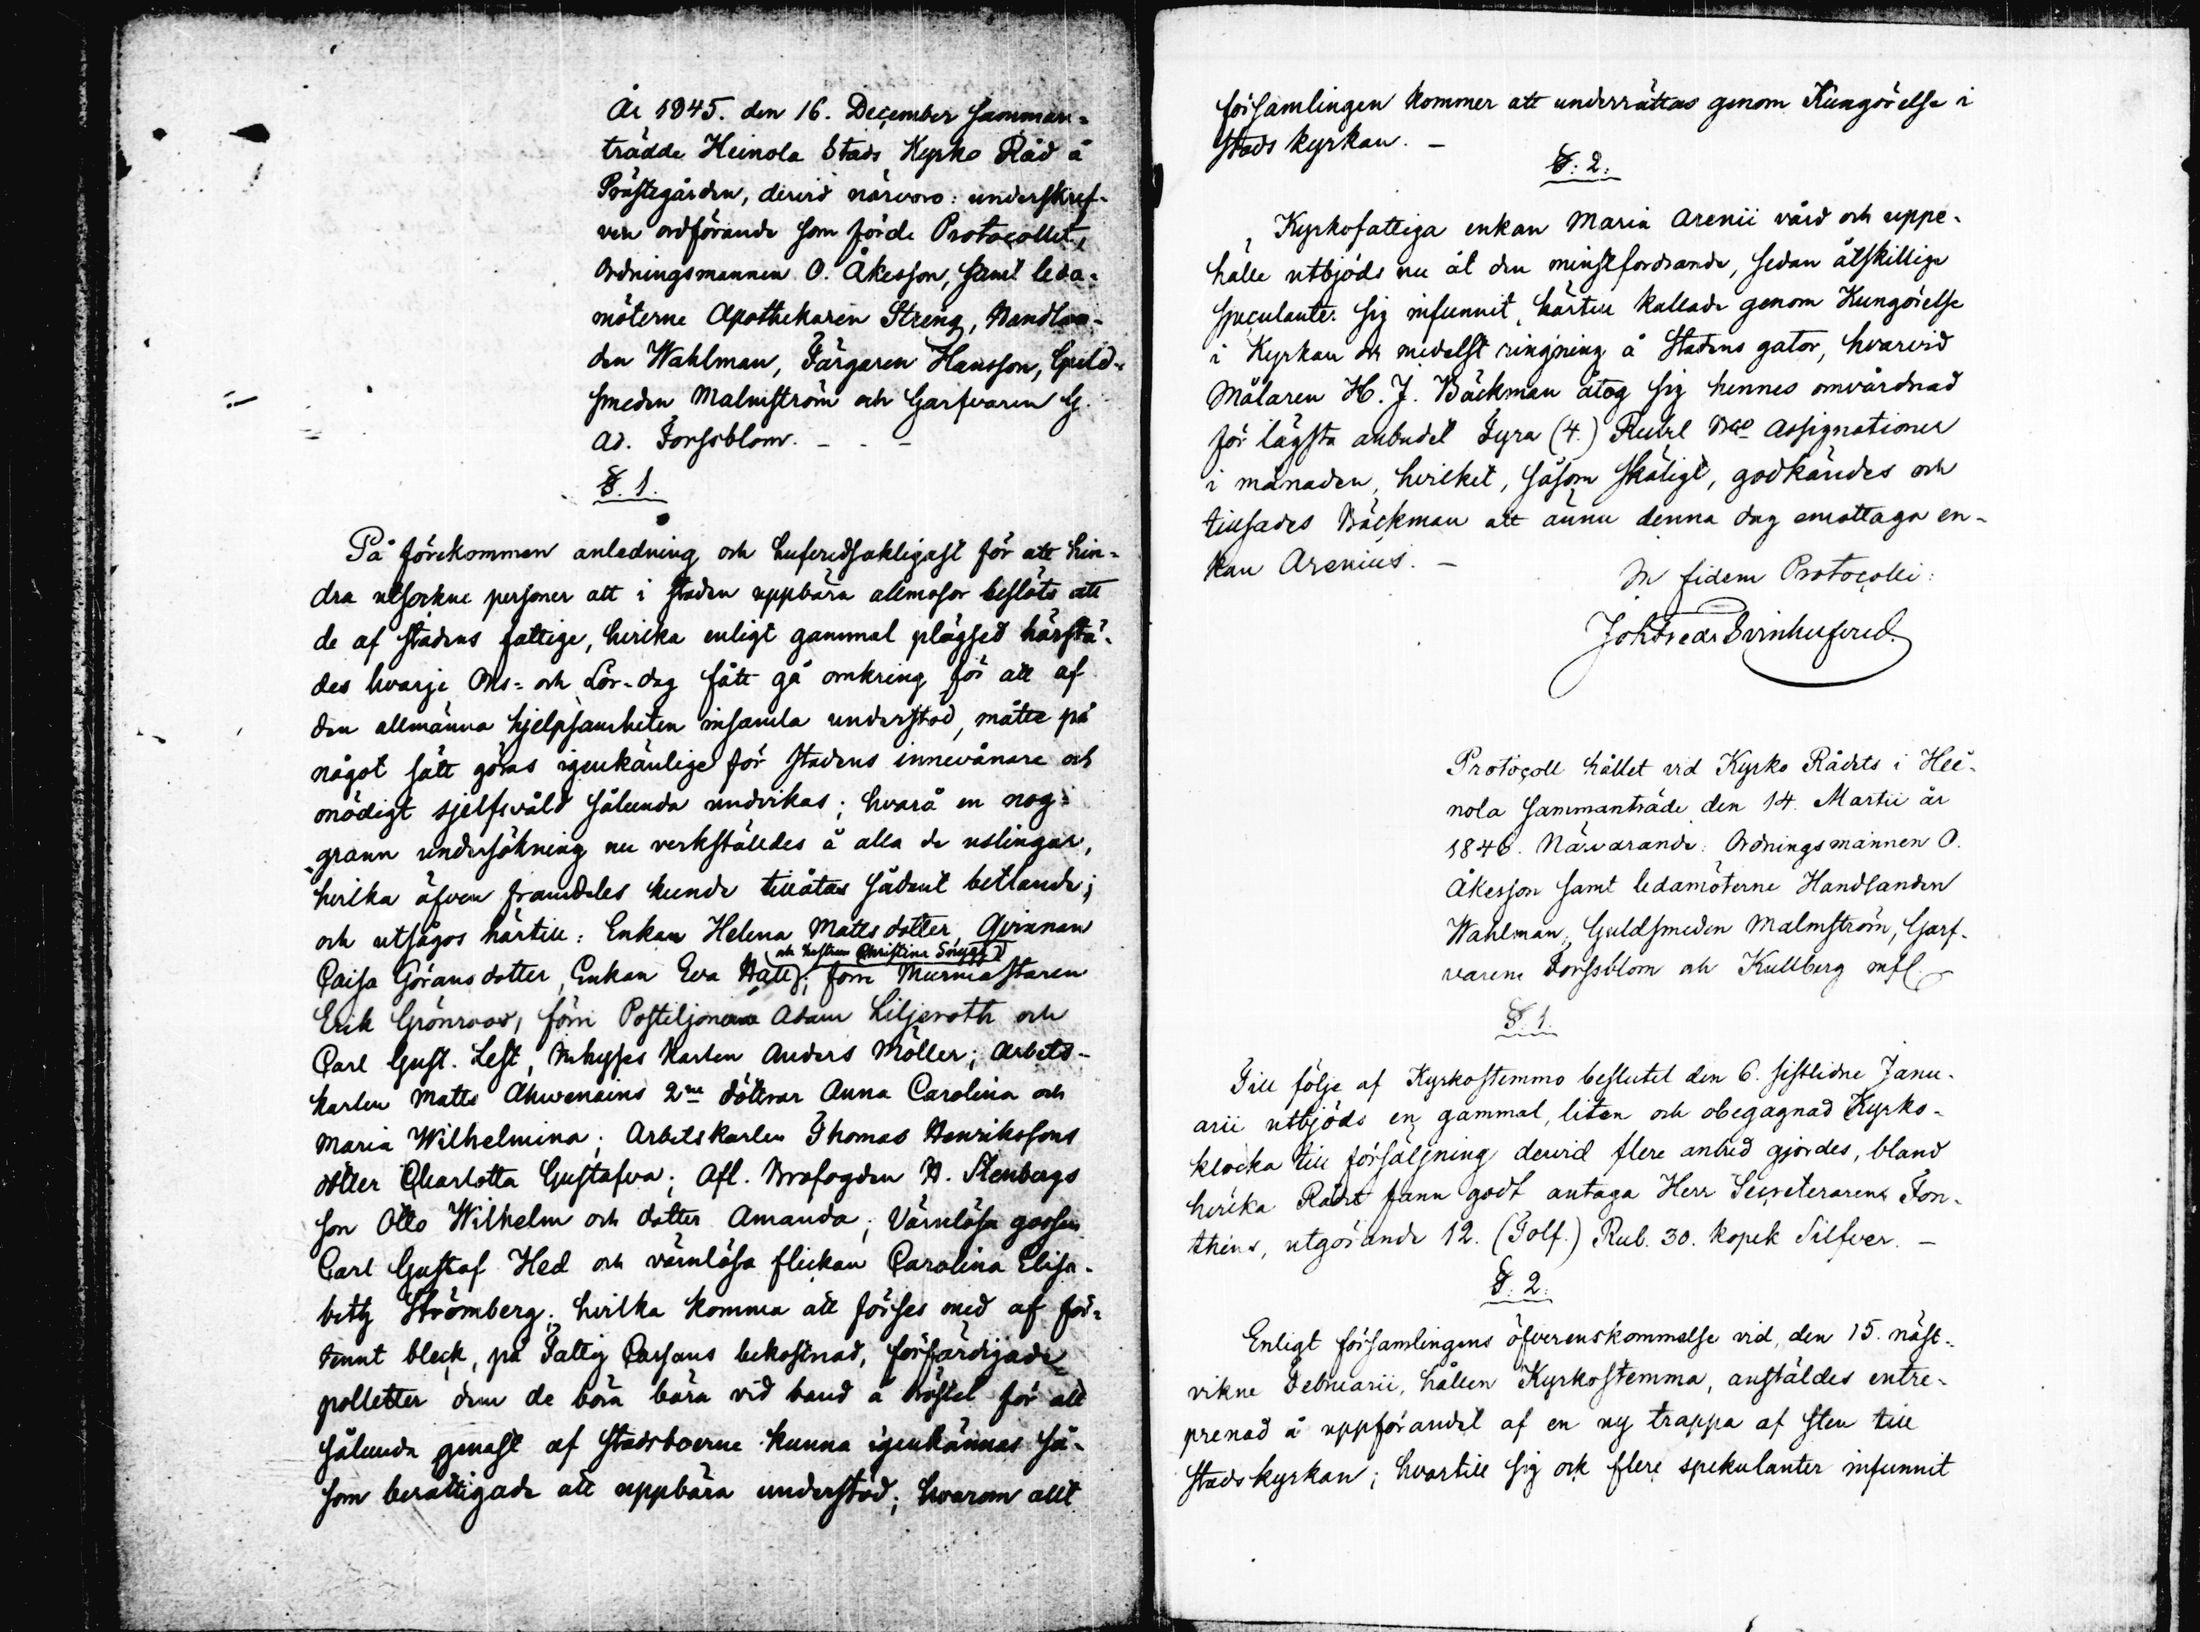 År 1845. den 16. December samman-
trädde Heinola Stads Kyrko Råd å
Prästegården, dervid närvoro: underskref-
ven ordförande som förde Protocollet,
Ordningsmannen O. Åkesson, samt leda-
möterne Apothekaren Streng, Handlan-
den Wahlman, Färgaren Hansson, Guld-
smeden Malmström och Garfvaren G.
Ad. Forssblom. - - -
§. 1.
På förekommen anledning och hufvudsakligast för att hin-
dra utsockne personer att i staden uppbära allmosor beslöts att
de af stadens fattige, hvilka enligt gammal plägsed härstä-
des hvarje Ons- och Lör-dag fått gå omkring för att af
den allmänna hjelpsamheten insamla understöd, måtte på
något sätt göras igenkänlige för stadens innevånare och
onödigt sjelfsvåld sålunda undvikas; hvarå en nog-
grann undersökning nu verkställdes å alla de uslingar,
hvilka äfven framdeles kunde tillåtas sådant betlande;
och utsågos härtill: Enkan Helena Mattsdotter, Qvinnan
och hustrun Christina
Caisa Göransdotter, Enkan Eva Hall; förre Murmästaren
Erik Grönroos, förre Postiljonerne Adam Liljeroth och
Carl Gust. Lest, Inhyses Karlen Anders Möller; Arbets-
karlen Matts Ahvenains 2ne döttrar Anna Carolina och
Maria Wilhelmina; Arbetskarlen Thomas Henrikssons
dotter Charlotta Gustafva; Afl. Brofogden H. Stenbergs
son Otto Wilhelm och dotter Amanda; Värnlösa gossen
Carl Gustaf Hed och värnlösa flickan Carolina Elisa-
beth Strömberg; hvilka komma att förses med af för-
tennt bleck, på Fattig Cassans bekostnad, förfärdigade
polletter dem de böra bära vid band å bröstet för att
sålunda genast af Stadsboerne kunna igenkännas så-
som berättigade att uppbära understöd; hvarom allt
församlingen kommer att underrättas genom Kungörelse i
Stads kyrkan. -
§. 2.
Kyrkofattiga enkan Maria Arenii vård och uppe-
hälle utbjöds nu åt den minstfordrande, sedan åtskillige
speculanter sig infunnit, härtill kallade genom Kungörelse
i Kyrkan och medelst ringning å Stadens gator, hvarvid
Målaren H. J. Bäckman åtog sig hennes omvårdnad
för lägsta anbudet Fyra (4.) Rubel Bco Assignationer
i månaden, hvilket, såsom skäligt, godkändes och
tillsades Bäckman att ännu denna dag emottaga en-
kan Arenius. -
In fidem Protocolli:
Joh Fredr Svinhufvud
Protocoll hållet vid Kyrko Rådets i Hei-
nola sammanträde den 14. Martii år
1846. Närvarande: Ordningsmännen O.
Åkesson samt ledamöterne Handlanden
Wahlman, Guldsmeden Malmström, Garf-
varene Forssblom och Kullberg mfl.
§. 1.
Till följe af Kyrkostemmo beslutet den 6. sistlidne Janu-
arii utbjöds en gammal, liten och obegagnad Kyrko-
klocka till försäljning dervid flere anbud gjordes, bland
hvilka Rådet fann godt antaga Herr Secreteraren Fon-
théns, utgörande 12. (Tolf.) Rub. 30. kopek Silfver. -
§. 2.
Enligt församlingens öfverenskommelse vid, den 15. näst-
vikne Februarii, hållen Kyrkostemma, anställdes entre-
prenad å uppförandet af en ny trappa af sten till
stadskyrkan; hvartill sig ock flere spekulanter infunnit